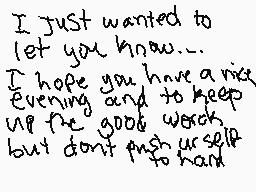 I just wanted to
let you know...
I hope you have a nice
evening and to keep
up the good worck
but dont push urself
to hard